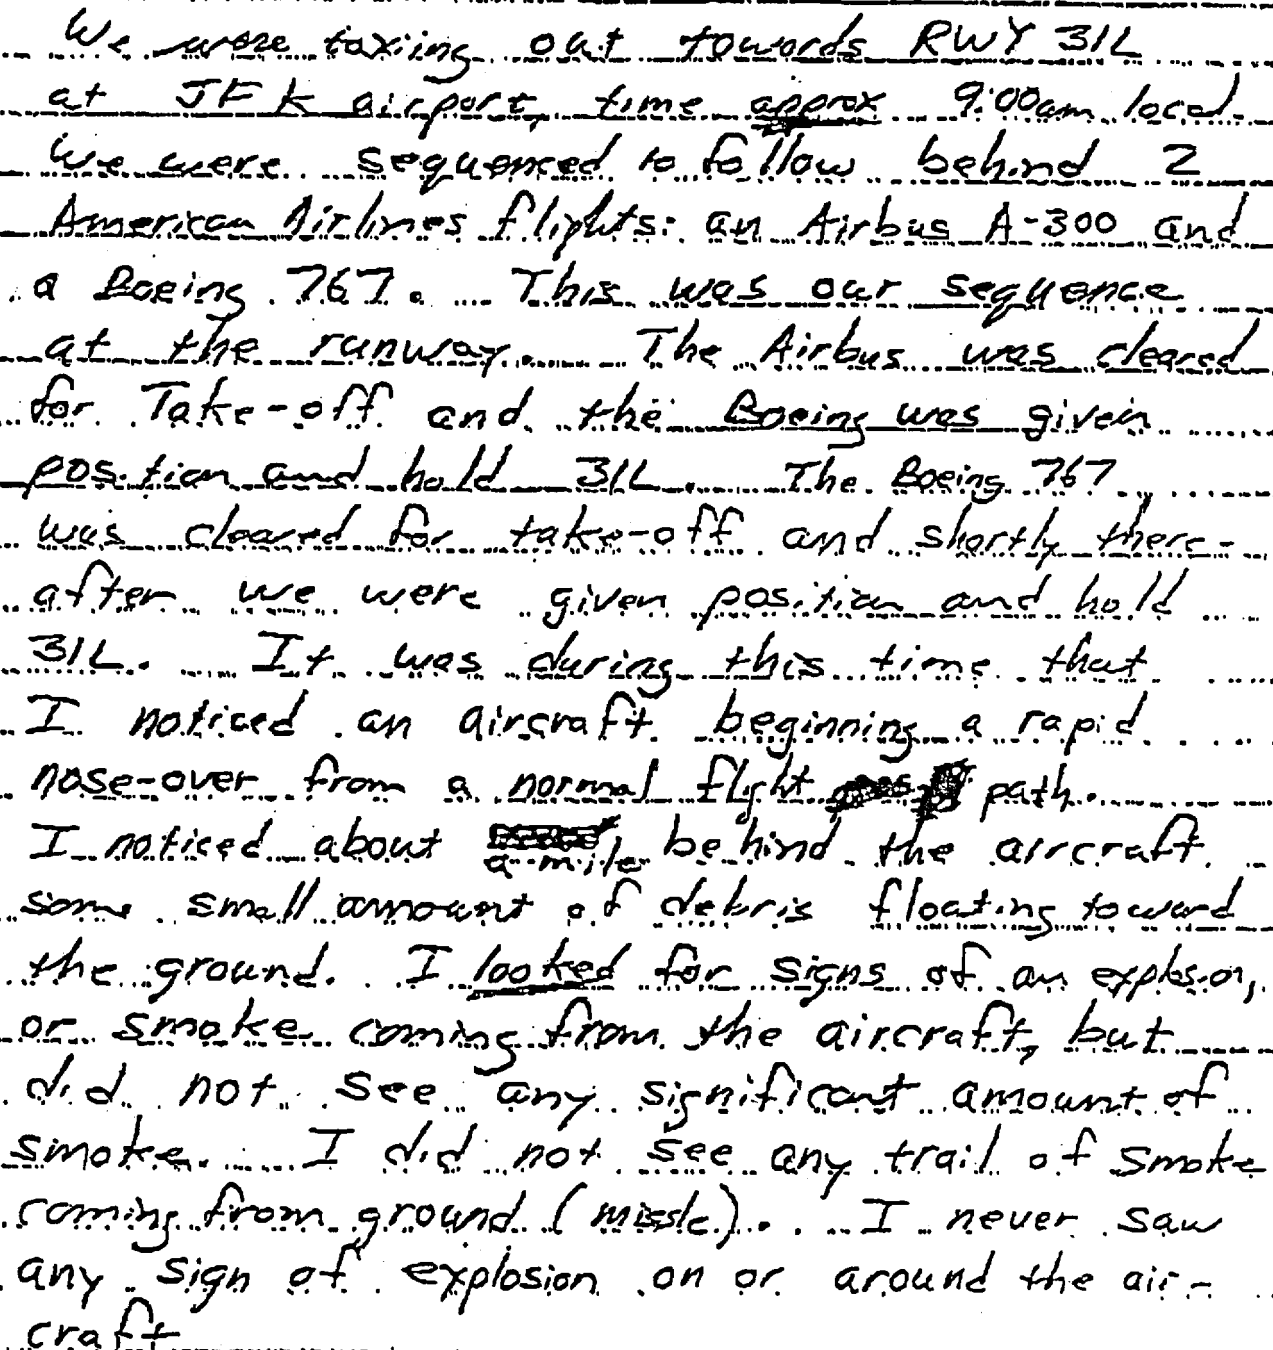 We were taxiing out towards RWY 31L
at JFK airport, time approx 9:00am local.
We were sequenced to follow behind 2
American Airlines flights: an Airbus A-300 and
a Boeing 767. This was our sequence
at the runway. The Airbus was cleared
for Take-off and the Boeing was given
position and hold 31L. The Boeing 767
was cleared for take-off and shortly there-
after we were given position and hold
31L. It was during this time that
I noticed an aircraft beginning a rapid
nose-over from a normal flight path.
I noticed about a mile behind the aircraft
some small amount of debris floating toward
the ground. I looked for signs of an explosion,
or smoke coming from the aircraft, but
did not see any significant amount of
smoke. I did not see any trail of smoke
coming from ground (missle). I never saw
any sign of explosion on or around the air-
craft